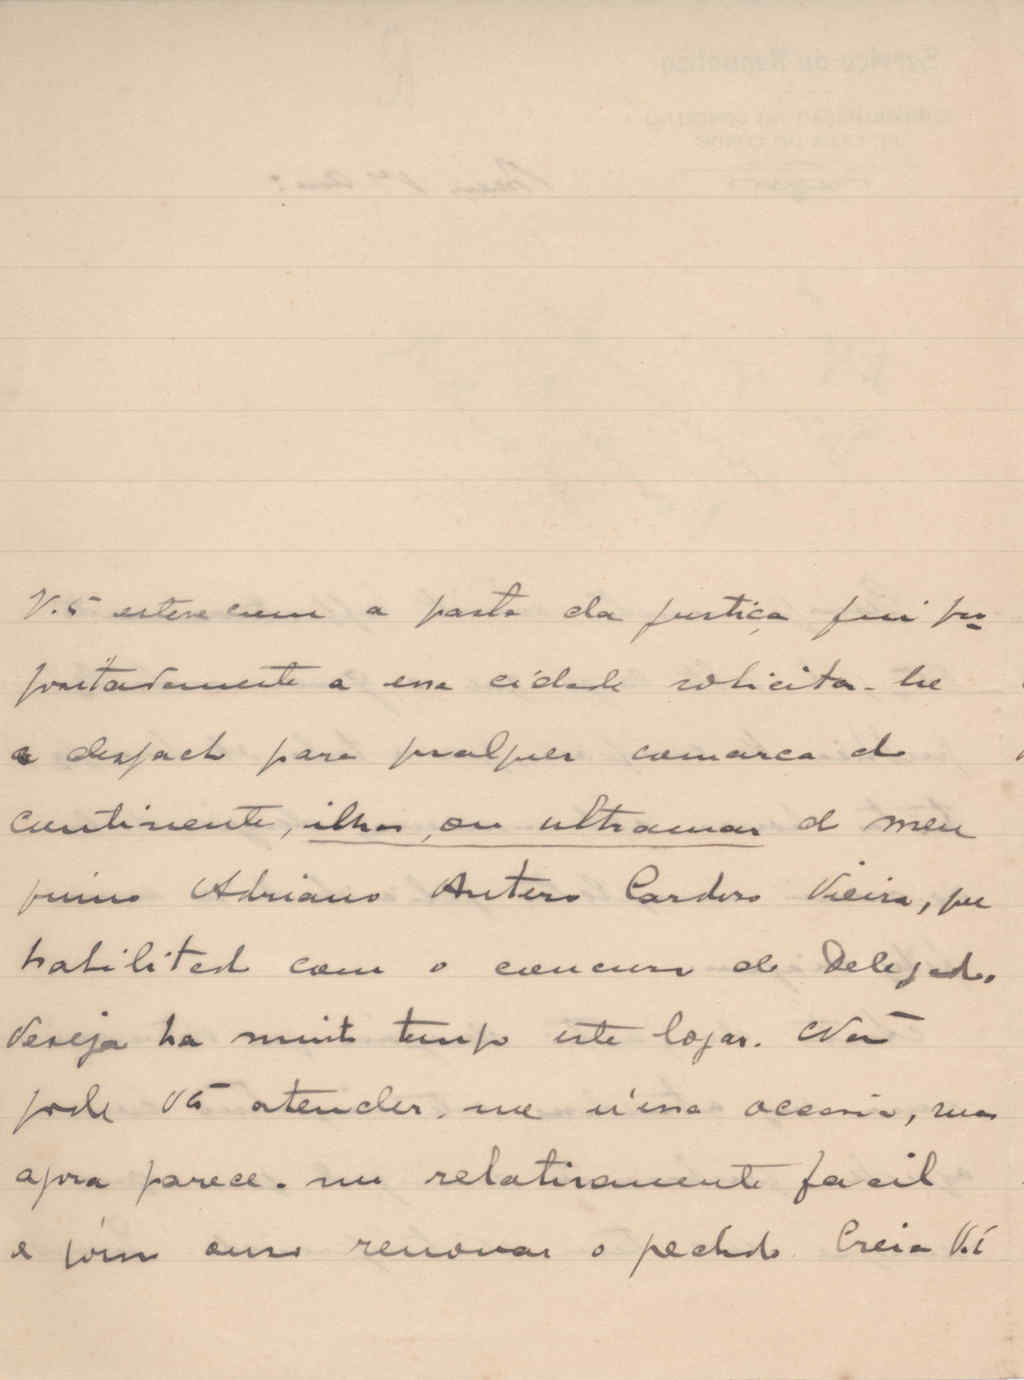 V. Eª esteve com a pasta da justiça fui pro
positadamente a essa cidade solicitar-lhe
o despacho para qualquer comarca do
continente, ilhas, ou ultramar do meu
primo Adriano Antero Cardoso Vieira, que
habilitado com o concurso de Delegado,
deseja ha muito tempo este logar. Não
pode V Eª atender-me n'essa occasião, mas
agora parece-me relativamente facil
e por isso ouso renovar o pedido. Creia V. Eª